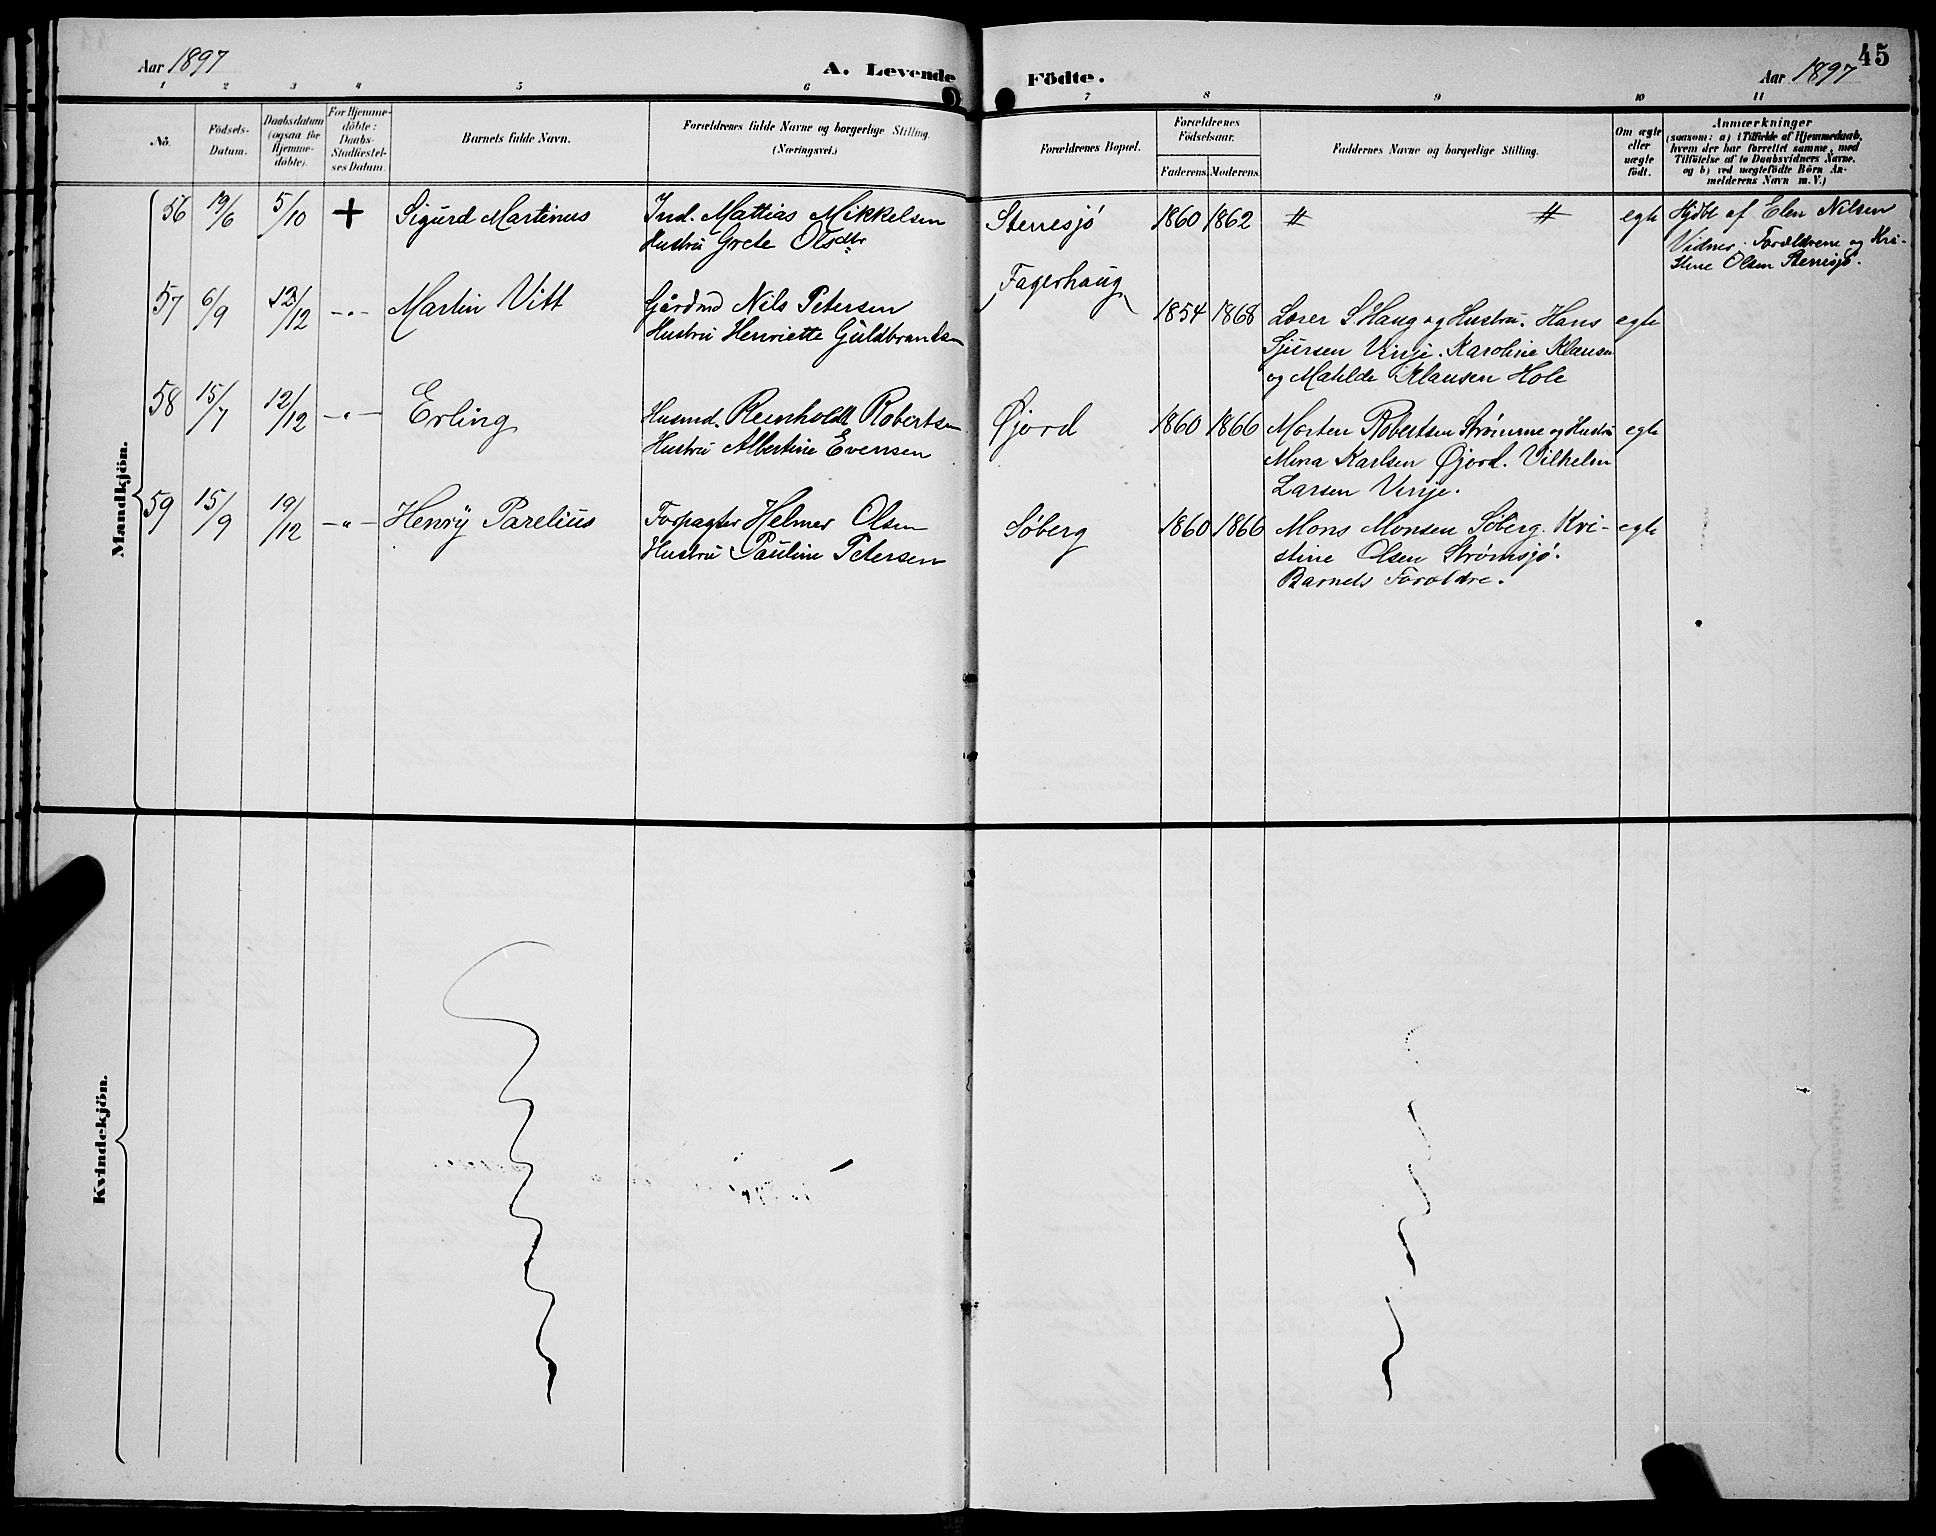 Aar 1897
A. Levende Födte.
Aar 1897
45
1 2 3 4 5 6 7 8 9 10 11
No.
Födsels-
Datum.
Daabsdatum
(ogsaa for
Hjemme-
döbte).
For Hjemme-
döbte:
Daabs-
Stadfæstel-
ses Datum.
Barnets fulde Navn.
Forældrenes fulde Navne og borgerlige Stilling.
(Næringsvei.)
Forældrenes Bopæl.
Forældrenes
Födselsaar.
Faderens. Moderens.
Faddernes Navne og borgerlige Stilling.
Om ægte
eller
uægte
født.
Anmærkninger
(saasom: a) i Tilfælde af Hjemmedaab,
hvem der har forrettet samme, med
Tilföielse af to Daabsvidners Navne,
og b) ved uægtefödte Börn An-
melderens Navn m. V.)
Mandkjön.
56 19/6 5/10 + Sigurd Martinus Ind. Mattias Mikkelsen Sterresjø 1860 1862 # # egte Hjdbt af Elen Nilsen
Hustru Grete Olsdtr Vidner: Forældrene og Kri-
stine Olsen Sterresjø.
57 6/9 12/12 -"- Martin Vitt Gårdmd Nils Petersen Fagerhaug 1854 1868 Lærer S Haug og Hustru. Hans egte
Hustru Henriette Guldbrandsen Sjursen Vinje. Karoline Klausen
og Matilde Klausen Hole
58 15/7 12/12 -"- Erling Husmd. Reinholdt Robertsen Øjord 1860 1866 Morten Robertsen Strømme og Hustru egte
Hustru Albertine Evensen Mina Karlsen Øjord. Vilhelm
Larsen Vinje.
59 15/9 19/12 -"- Henry Parelius Forpagter Helmer Olsen Søberg 1860 1866 Mons Monsen Søberg. Kri- egte
Hustru Pauline Petersen stine Olsen Strømsjø.
Barnets Forældre.
Kvindekjön.